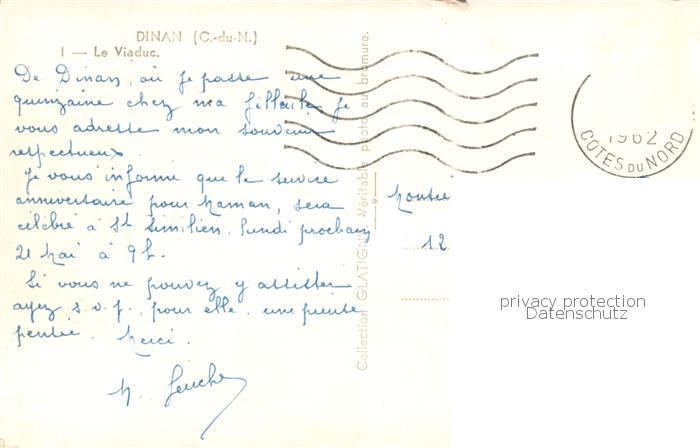 DINAN (C.-du-N.)
1 — Le Viaduc.
De Dinan, où je passe une
quinzaine chez ma fillette je
vous adresse mon souvenir
respectueux.
Je vous informe que le service
anniversaire pour Maman, sera
célébré à St Similien, lundi prochain
21 Mai à 9h.
Si vous ne pouvez y assister
ayez s.v.p. pour elle une pieuse
pensée. Merci.
M.
Collection GLATIGNY Véritable photo au bromure.
12
1962
COTES DU NORD
privacy protection
Datenschutz